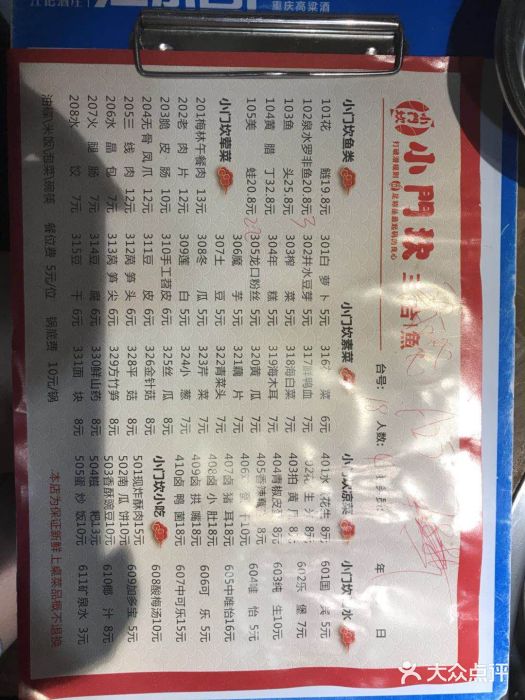 重庆高粱酒
小门坎
小門坎
打破潜规则 足期品鱼最低码的良心
台号: 18 人数:
年 日
小门坎鱼类
101花 鲢19.8元
102泉水罗非鱼20.8元
103鱼 头25.8元
104黄 腊 丁32.8元
105美 蛙20.8元
小门坎荤菜
201梅林午餐肉 13元
202老 肉 片 12元
203脆 皮 肠 10元
204无 骨 凤 爪 12元
205三 线 肉 12元
206水 晶 包 7元
207火 腿 肠 7元
208水 饺 7元
小门坎素菜
301白 萝 卜 5元
302井水豆芽 5元
303榨 菜 5元
304年 糕 5元
305龙口粉丝 5元
306魔 芋 5元
307土 豆 5元
308冬 瓜 5元
309莲 白 5元
310手工苕皮 6元
311豆 皮 6元
312莴 笋 头 6元
313莴 笋 尖 6元
314豆 腐 6元
315豆 干 6元
菜 6元
317鲜鸭血 7元
318海白菜 7元
319海木耳 7元
320黄 瓜 7元
321藕 片 7元
322青菜头 7元
323芹 菜 7元
324小 葱 7元
325丝 瓜 8元
326金针菇 8元
328平 菇 8元
329方竹笋 8元
330鲜山药 8元
331面 块 8元
凉菜
401水 花牛 8元
402花 生 8元
403拍 黄 8元
404青椒皮蛋 8元
407卤 猪 耳18元
408卤 小 肚18元
409卤 拱 嘴18元
410卤 鸭 菌18元
小门坎小吃
501现炸酥肉15元
502南 瓜 饼10元
503香酥豌豆10元
504糍 粑13元
505蛋 炒 饭10元
小门坎 水
601国 宾 5元
602乐 堡 7元
603纯 生10元
604唯 怡 5元
605中唯怡16元
606可 乐 5元
607中可乐15元
608酸梅汤10元
609加多宝 5元
610椰 汁 8元
611矿泉水 3元
油碟/米饭/泡菜/碗筷 餐位费 5元/位 锅底费 10元/锅
本店为保证新鲜上桌菜品概不退换
大众点评